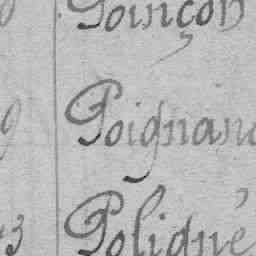 Poinçon
Poignan
Poligné